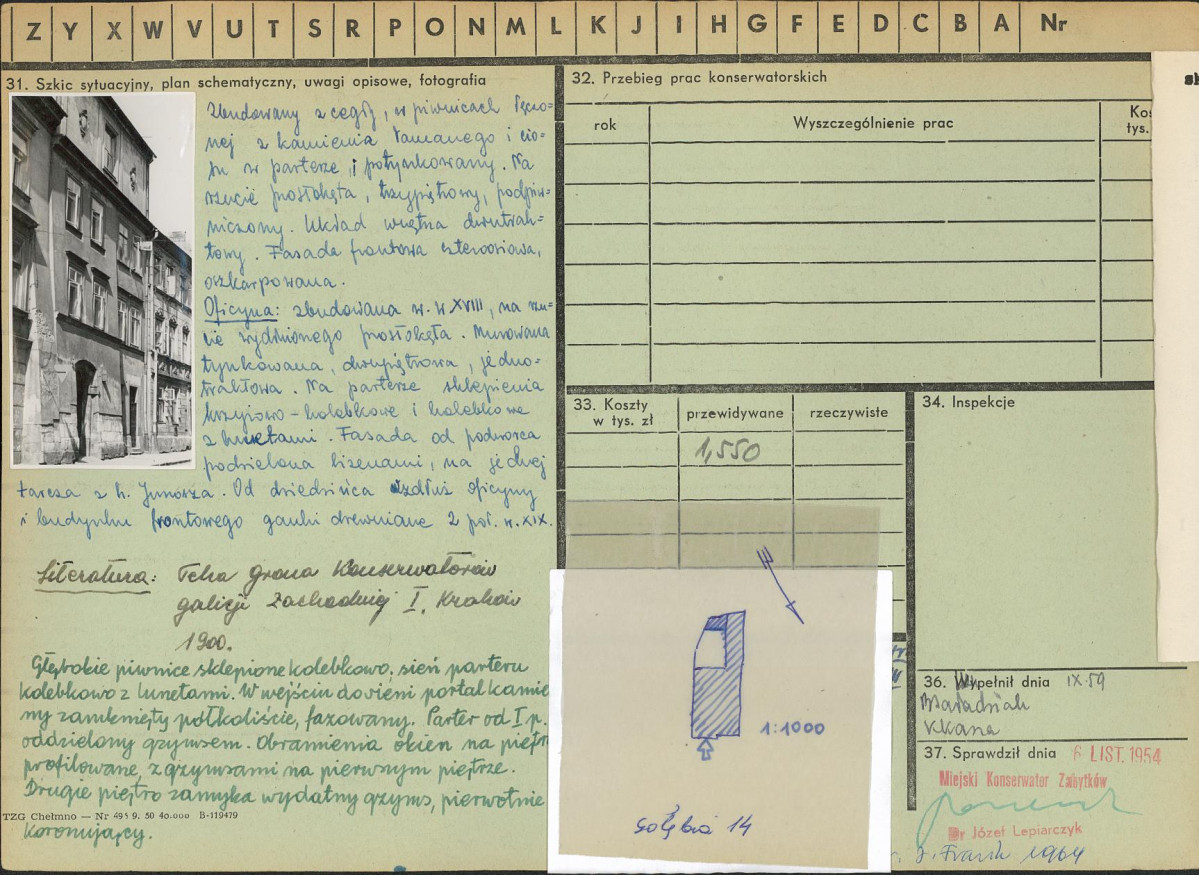 Z Y X W V U T S R P O N M L K J I H G F E D C B A Nr
31. Szkic sytuacyjny, plan schematyczny, uwagi opisowe, fotografia
Zbudowany z cegły, w piwnicach łącz-
nej z kamienia łamanego i cio-
su w parterze, i potynkowany. Na
rzucie prostokąta, trzypiętrowy, podpiw-
niczony. Układ wnętrza dwutrak-
towy. Fasada frontowa czteroosiowa,
oszkarpowana.
Oficyna: zbudowana w. w XVIII, na rzu-
cie wydłużonego prostokąta. Murowana
tynkowana, dwupiętrowa, jedno-
traktowa. Na parterze sklepienia
krzyżowo-kolebkowe i kolebkowe
z lunetami. Fasada od podworca
podzielona lizenami, na jednej
tarcza z h. Junosza. Od dziedzińca wzdłuż oficyny
i budynku frontowego ganki drewniane 2 poł. w. XIX.
Literatura: Teka Grona Konserwatorów
galicji Zachodniej I, Kraków
1900.
Głębokie piwnice sklepione kolebkowo. sień parteru
kolebkowo z lunetami. W wejściu do sieni portal kamie
ny zamknięty półkoliście, fazowany. Parter od I p.
oddzielony gzymsem. Obramienia okien na piętr
profilowane, z gzymsami na pierwszym piętrze.
Drugie piętro zamyka wydatny gzyms, pierwotnie
koronujący.
TZG Chełmno — Nr 495 9. 50 40.000 B-119479
32. Przebieg prac konserwatorskich
rok
Wyszczególnienie prac
Kos
tys.
33. Koszty
w tys. zł
przewidywane
rzeczywiste
1,550
34. Inspekcje
1:1000
Gołębia 14
36. Wypełnił dnia IX.59
37. Sprawdził dnia 6 LIST. 1954
Miejski Konserwator Zabytków
Dr Józef Lepiarczyk
J. Frank 1964